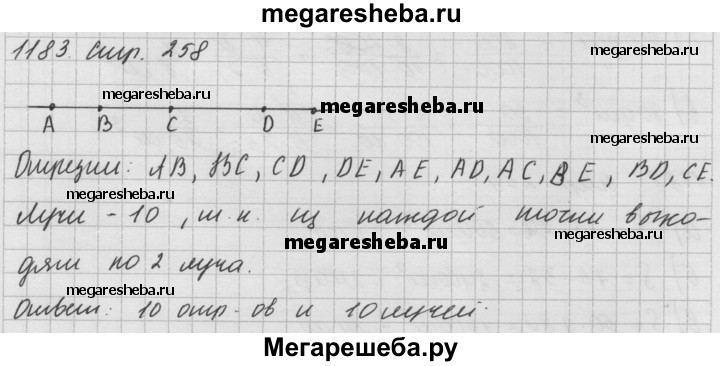 megaresheba.ru
1183 стр. 258
megaresheba.ru
megaresheba.ru
megaresheba.ru
A B C D E
megaresheba.ru
Отрезки: AB, BC, CD, DE, AE, AD, AC, BE, BD, CE.
megaresheba.ru
Лучи - 10, т.к. из каждой точки выхо-
megaresheba.ru
дят по 2 луча.
megaresheba.ru
megaresheba.ru
Ответ: 10 отр-ов и 10 лучей.
Мегарешеба.ру